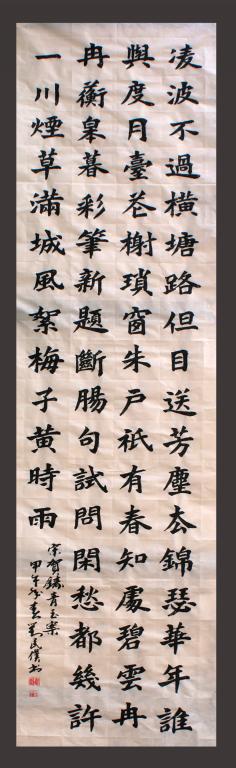 凌波不過橫塘路但目送芳塵去錦瑟華年誰
與度月臺花榭瑣窗朱戶祇有春知處碧雲冉
冉蘅皋暮彩筆新題斷腸句試問閑愁都幾許
一川煙草滿城風絮梅子黃時雨
宋賀鑄青玉案
甲午年春